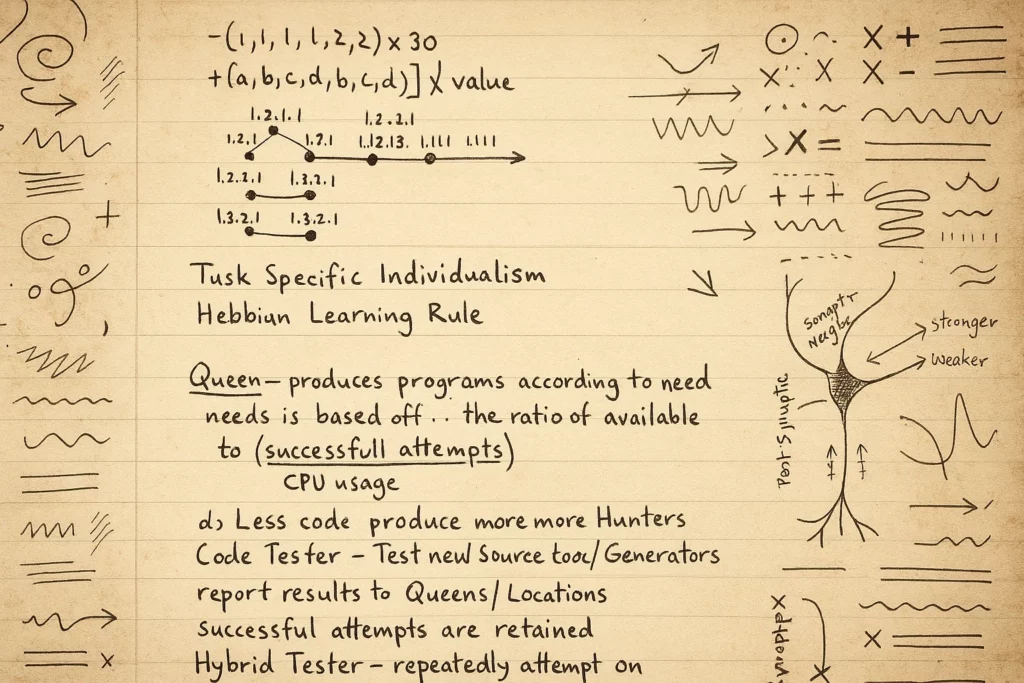 -(1,1,1,1,2,2) x 30
+(a,b,c,d,b,c,d)] X value
1.2.1.1
1.2.2.1
1.2.1
1.7.1
1.12.13.
1.111
1.111
1.2.2.1
1.3.2.1
1.3.2.1
1.3.2.1
Tusk Specific Individualism
Hebbiun Learning Rule
Queen – produces programs according to need
needs is based off .. the ratio of available
to (successfull attempts)
CPU usage
d) Less code produce more more Hunters
Code Tester – Test new Source tooc/Generators
report results to Queens/Locations
successful attempts are retained
Hybrid Tester – repeatedly attempt on
X +
X X -
> X =
+ + +
stronger
weaker
X
x